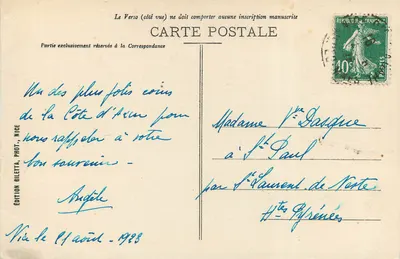 Le Verso (côté vue) ne doit comporter aucune inscription manuscrite
CARTE POSTALE
Partie exclusivement réservée à la Correspondance
RÉPUBLIQUE FRANÇAISE
40c
POSTES
Un des plus jolis coins
de la Côte d'Azur pour
vous rappeler à votre
bon souvenir.
Angèle
Nice le 21 août - 1923
Madame Vve Dasque
à St Paul
par St Laurent de Neste
Htes Pyrénées
ÉDITION GILETTA, PHOT., NICE